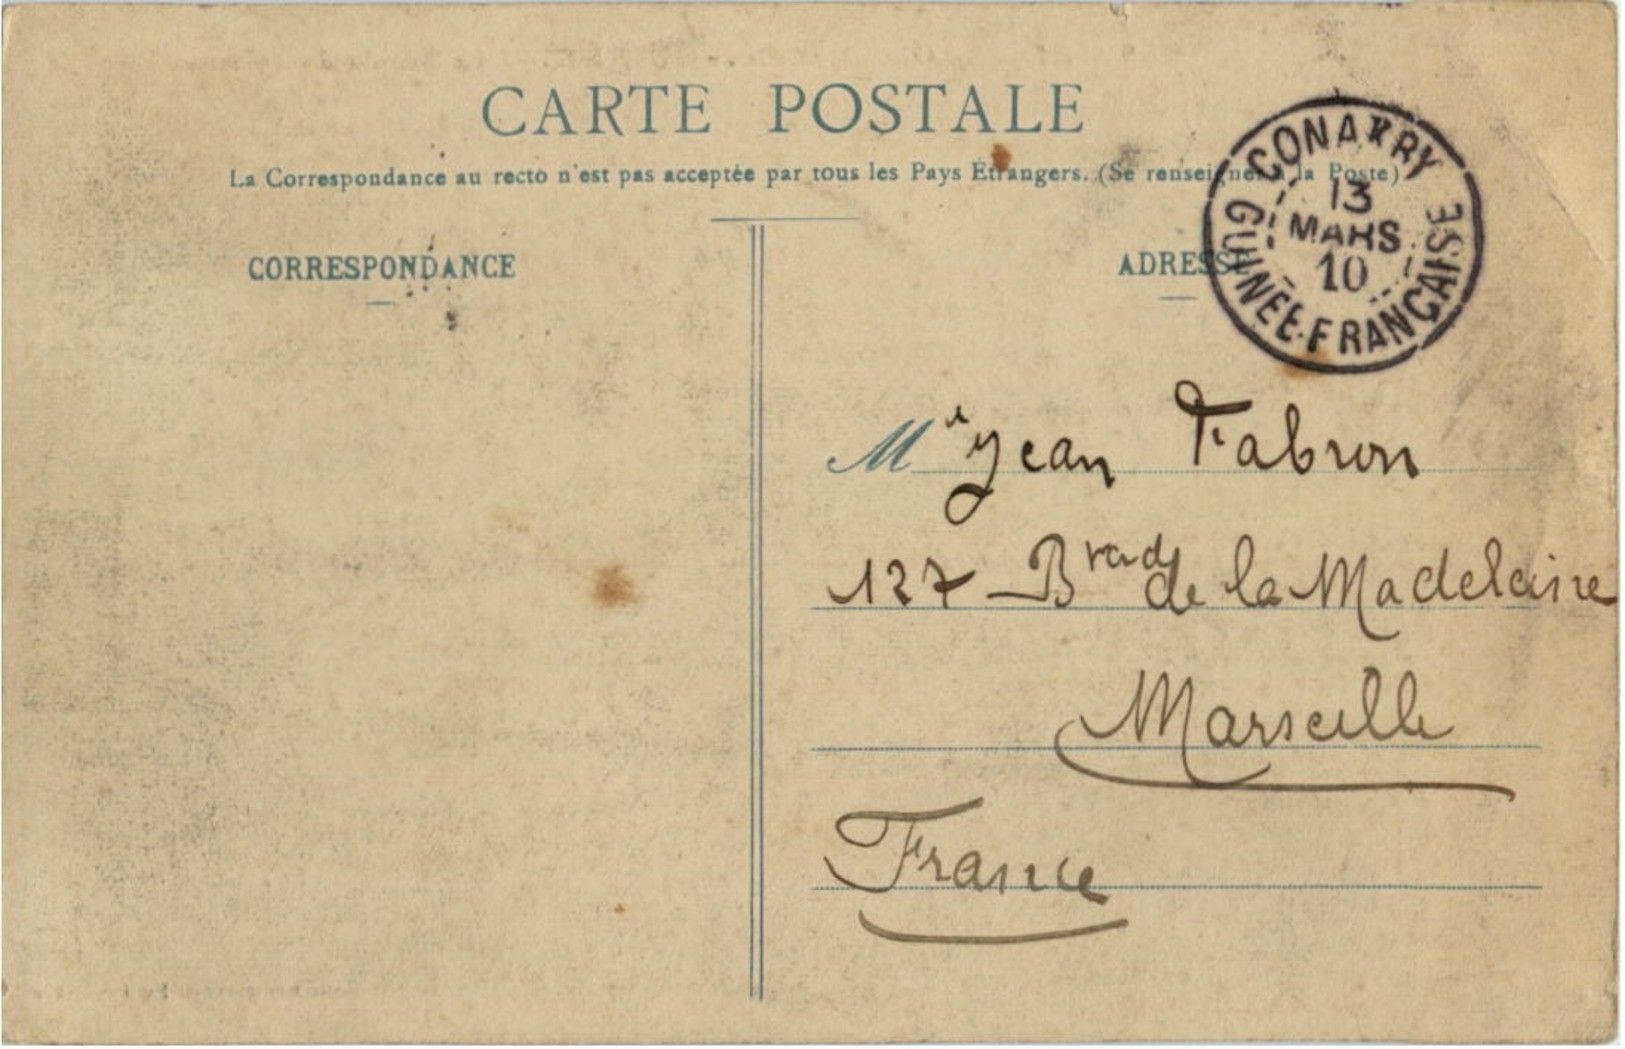 CARTE POSTALE
La Correspondance au recto n'est pas acceptée par tous les Pays Étrangers. (Se renseigner à la Poste)
CORRESPONDANCE
ADRESSE
CONAKRY
13
MARS
10
GUINÉE-FRANÇAISE
Mr Jean Fabron
127 Bvard de la Madeleine
Marseille
France